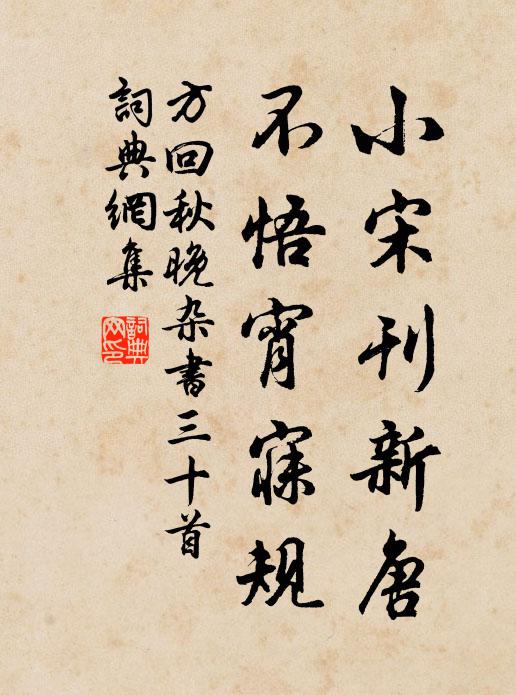 小宋刊新唐
不悟宵寐規
方回秋晚杂書三十首
詞典網集
詞典網印